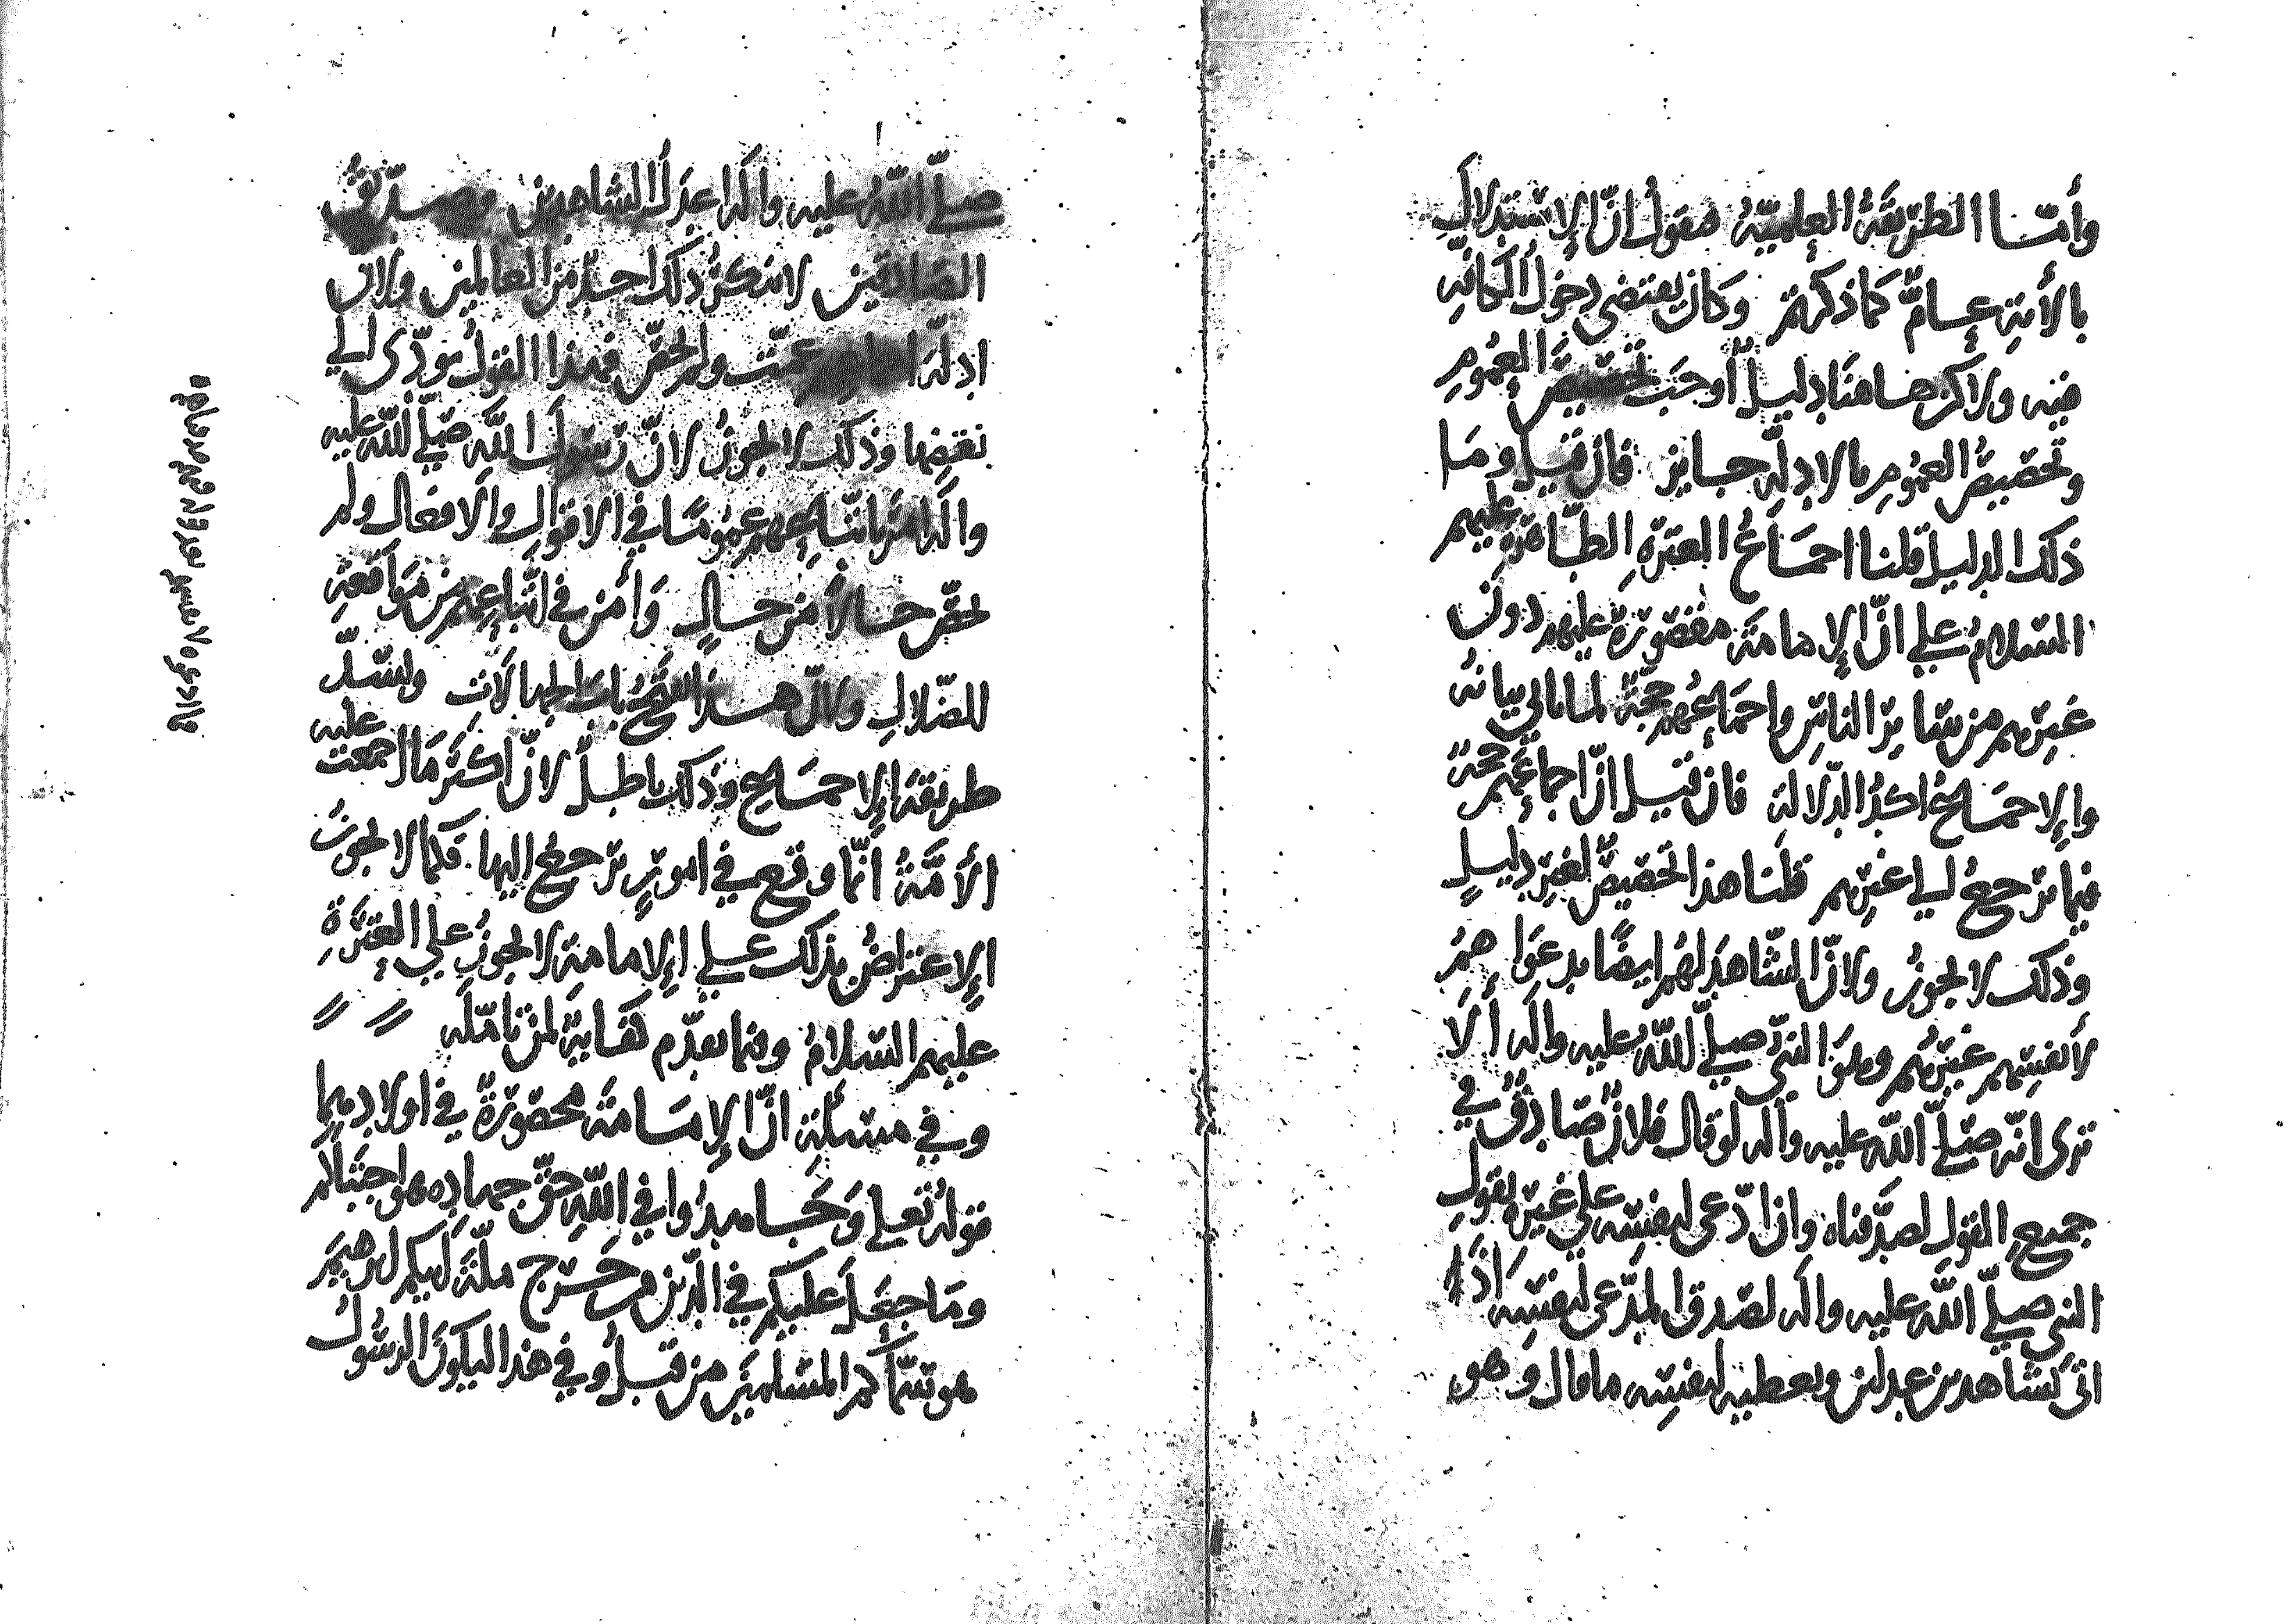 وأمّا الطريقَةُ العِلميّةُ فنقولُ انّ الإستدلالِ
بالأية عامٌّ كما ذكرتم وكان يقتضي دخولُ الكافّهِ
فيه ولاكن هاهنا دليلٌ أوجَبَ تخصيصَ العُمومِ
وتخصيصُ العمومِ بالادلّهِ جايز فان قيل ومَا
ذلك الدليل قلنا اجماعُ العترةِ الطّاهرةِ عليهم
السّلامُ على انّ الإمامةَ مقصورةٌ عليهم دونَ
غيرهم من سايرِ الناسِ واجماعُهم حجّةٌ لما ياتي بيانُه
والإجماعُ اكدُ الدّلالة فان قيل انّ اجماعَهم حجّة
فيما يرجعُ الى غيرهم قلنا هذا تخصيصٌ لغير دليلٍ
وذلك لا يجوزُ ولانّ الشّاهدَ لهم ايضًا بدعواهُم
لأنفسِهم غيرُهم وهو النبيّ صلّى اللّه عليه واله ألا
ترى انّه صلّى اللّه عليه واله لو قال فلانٌ صادقٌ في
جميع القولِ لصدّقناه وان ادّعى لنفسِه على غيرِه بقولِ
النبي صلّى اللّه عليه واله لصدق المدّعي لنفسِه اذا
اتى بشاهدين عدلين ويعطيه لنفسِه ما قال وهو
صلّى اللّهُ عليه واله اعدلُ الشاهدين وصدّيقُ
الصّادقين لا ينكرُ ذلك احدٌ من العالمين ولانّ
ادلّه عمّت ولم تخصّ فهذا القولُ يودّى الي
نقضِها وذلك لا يجوزُ لانّ رسُولَ اللّهِ صلّى اللّه عليه
واله امر باتّباعِهم عمُومًا في الاقوالِ والافعال ولم
يخصّ حالًا من حالٍ وأمن في اتّباعِهم من مواقعةِ
للضّلالِ ولانّ هذا يفتحُ بابَ الجهالاتِ وينسدّ عليه
طريقة الإجماعِ وذلك باطلٌ لانّ اكثرَ ما اجمعت
الأمّةُ انّما وقع في امورٍ ترجعُ اليها فكما لا يجوزُ
الإعتراضُ بذلك على الإمامةِ لا يجوزُ على العترةِ
عليهم السّلامُ وفيما تقدّم كفايةٌ لمن تامّله
وفي مسئلةِ انّ الإمامةَ محصورةٌ في اولادهما
قولُه تعلى وَجَاهِدُوا في اللّهِ حَقّ جهادِه هو اجتباكم
ومَا جعَلَ عليكم في الدّين من حَرَج ملّةَ أبيكم ابرهيمَ
هو سمّاكم المسلمينَ من قبلُ وفي هذا ليكونَ الرسُولُ